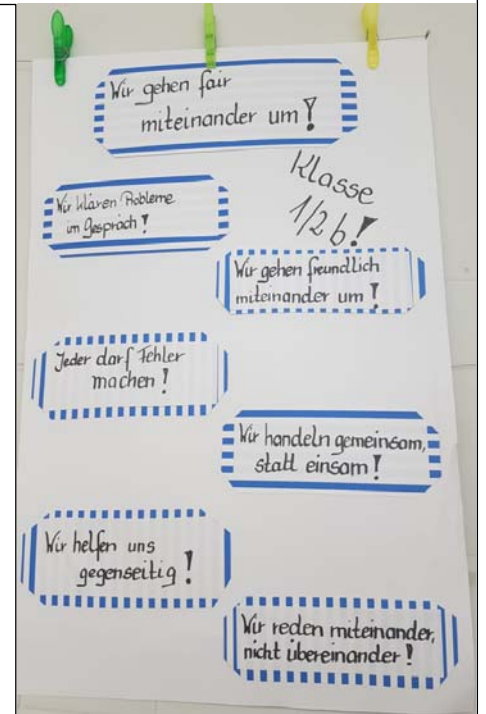 Wir gehen fair
miteinander um!
Klasse
1/2 b!
Wir klären Probleme
im Gespräch!
Wir gehen freundlich
miteinander um!
Jeder darf Fehler
machen!
Wir handeln gemeinsam,
statt einsam!
Wir helfen uns
gegenseitig!
Wir reden miteinander,
nicht übereinander!